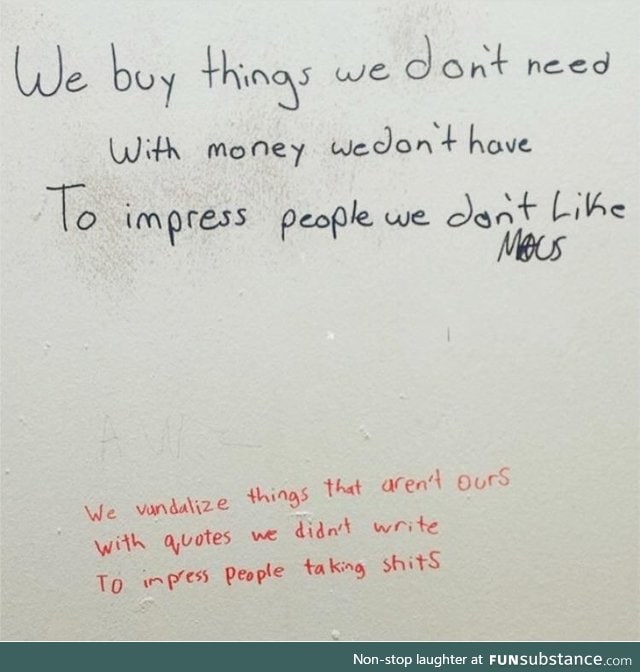 We buy things we don't need
With money we don't have
To impress people we don't Like
We vandalize things that aren't ours
with quotes we didn't write
To impress people taking shits
Non-stop laughter at FUNsubstance.com